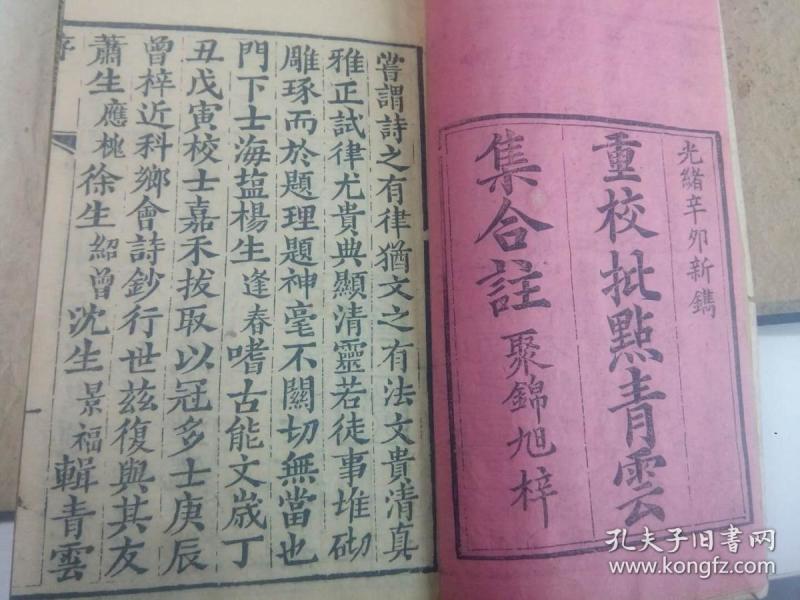 光緒辛卯新鐫
重校批點青雲
集合註 聚錦旭梓
嘗謂詩之有律猶文之有法文貴清真
雅正試律尤貴典顯清靈若徒事堆砌
雕琢而於題理題神毫不關切無當也
門下士海塩楊生逢春嗜古能文歲丁
丑戊寅校士嘉禾拔取以冠多士庚辰
曾梓近科鄉會詩鈔行世茲復與其友
蕭生應槐徐生紹曾沈生景福輯青雲
序
孔夫子旧书网
www.kongfz.com